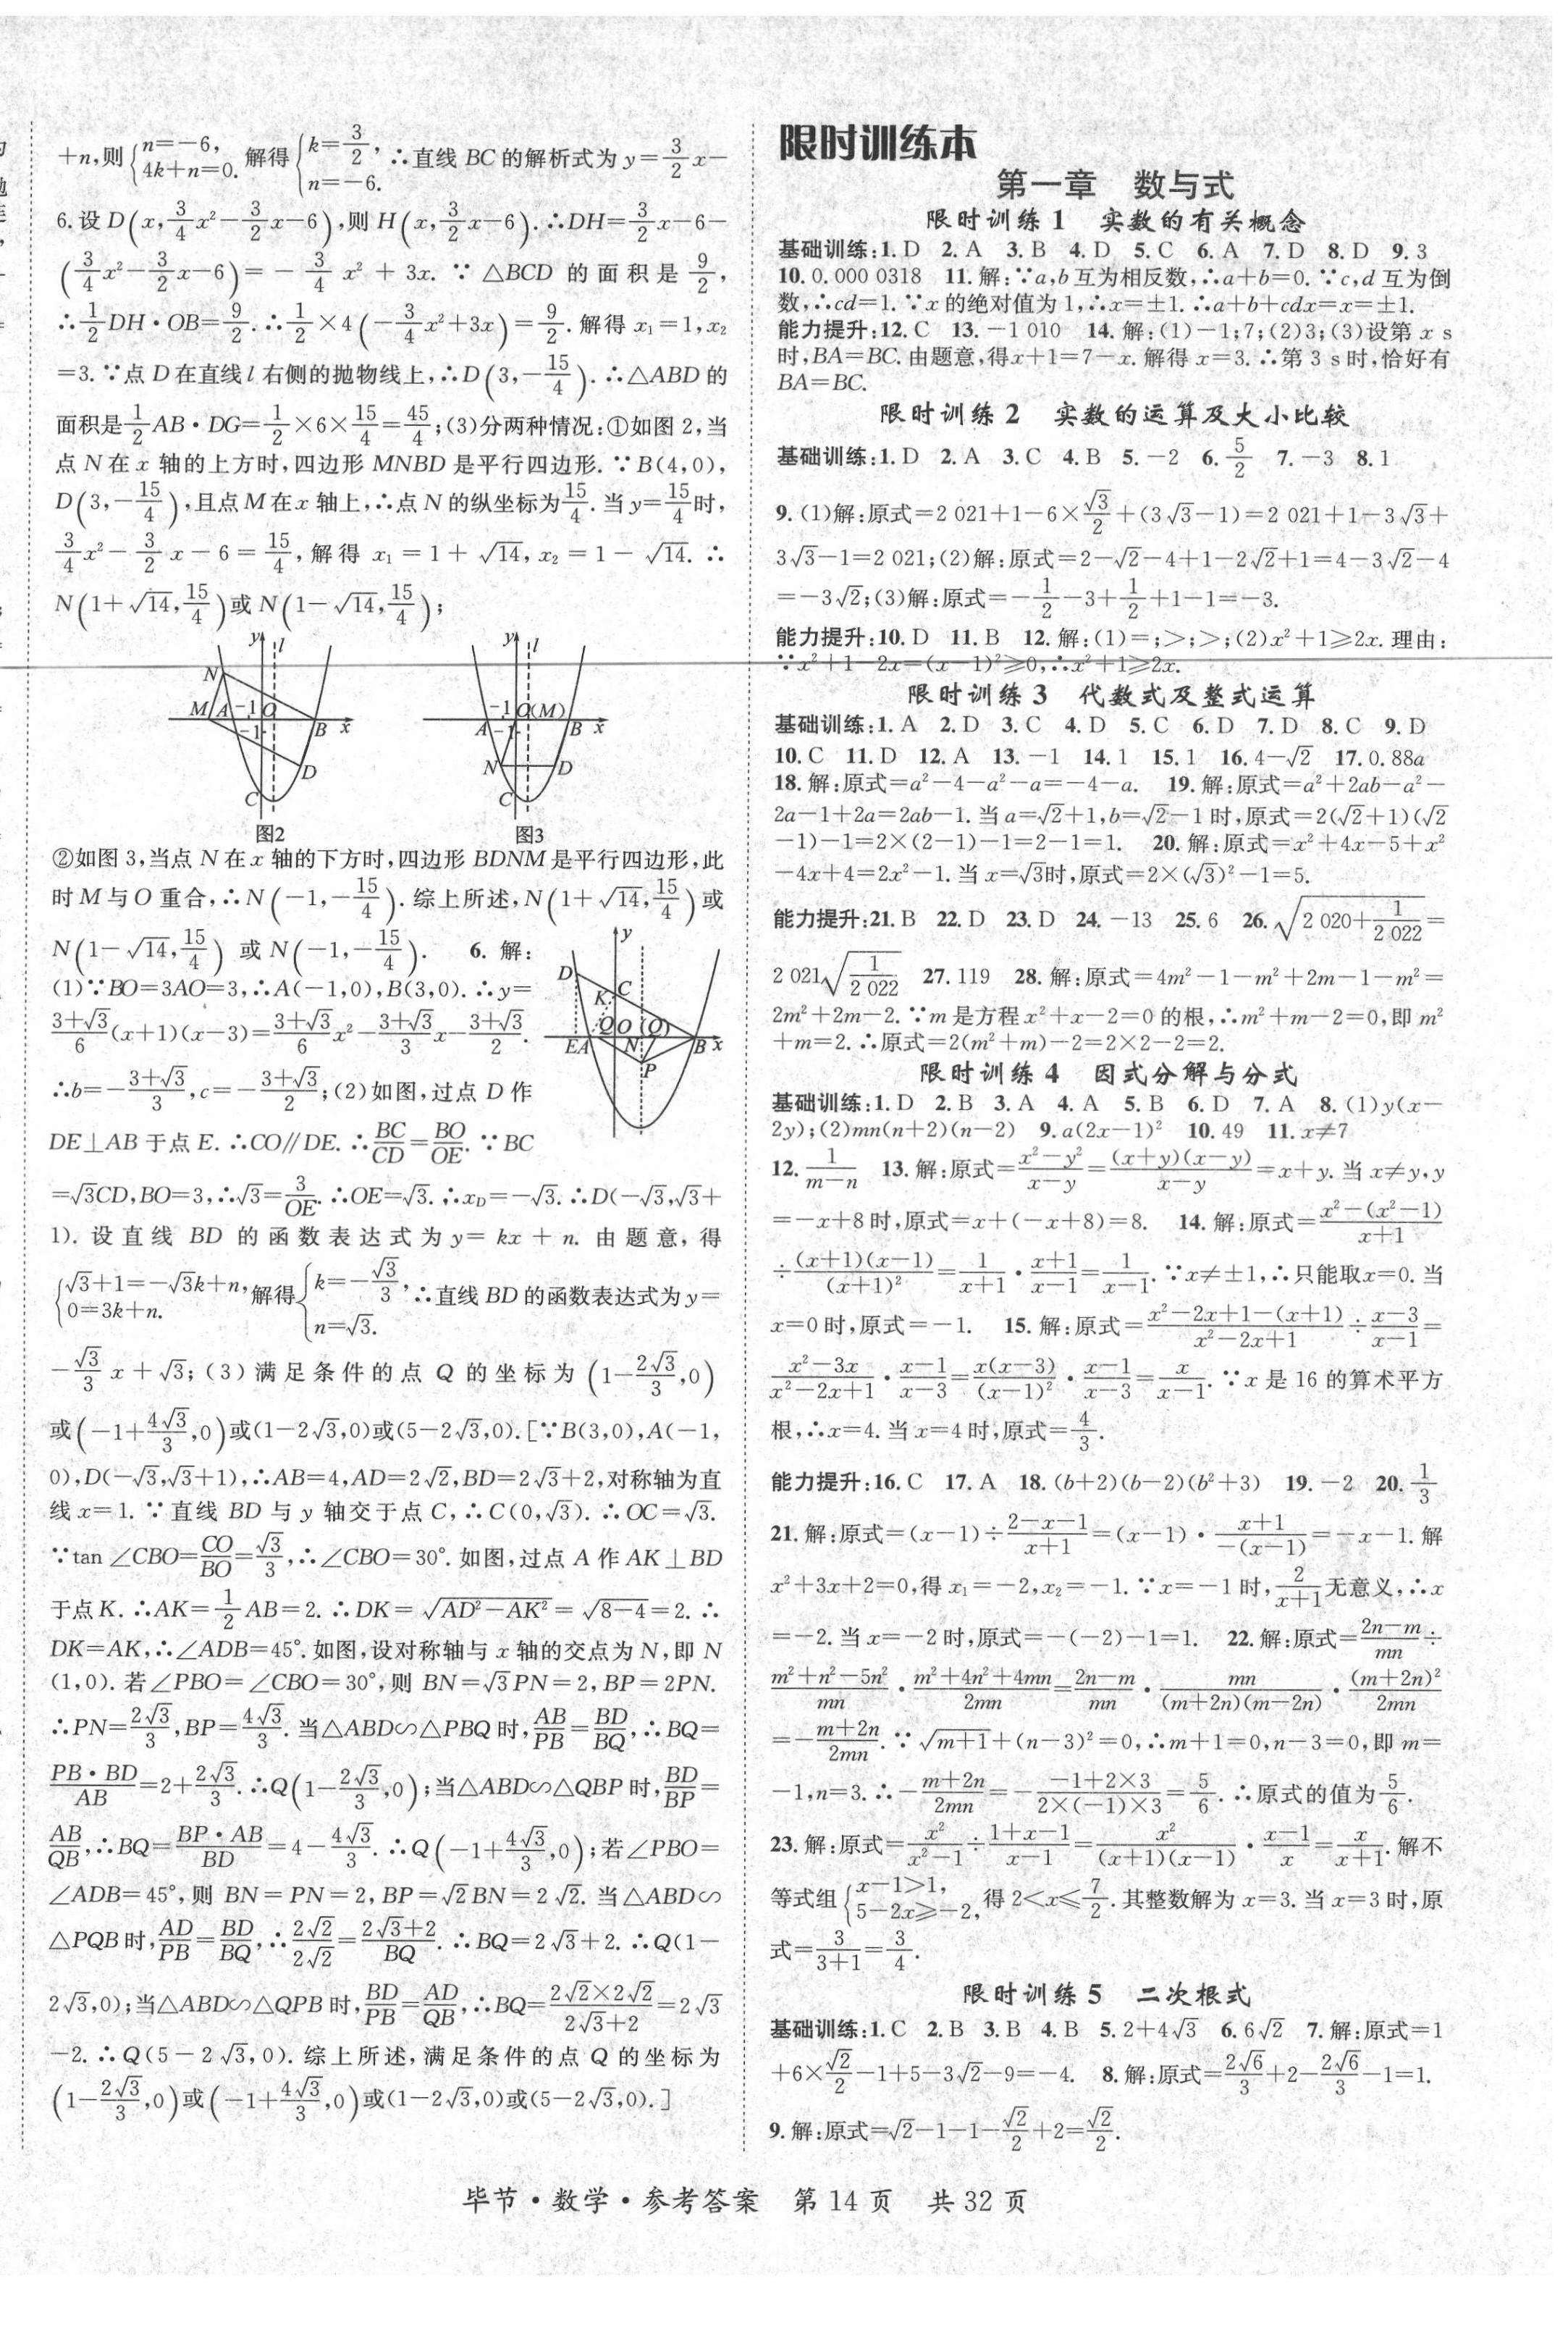 +n,则{n=-6, 4k+n=0. 解得{k=3/2, n=-6. ∴直线BC的解析式为y=3/2x-
6.设D(x,3/4x²-3/2x-6),则H(x,3/2x-6).∴DH=3/2x-6-
(3/4x²-3/2x-6)=-3/4x²+3x.∵△BCD的面积是9/2,
∴1/2DH·OB=9/2.∴1/2×4(-3/4x²+3x)=9/2.解得x₁=1,x₂
=3.∵点D在直线l右侧的抛物线上,∴D(3,-15/4).∴△ABD的
面积是1/2AB·DG=1/2×6×15/4=45/4;(3)分两种情况:①如图2,当
点N在x轴的上方时,四边形MNBD是平行四边形.∵B(4,0),
D(3,-15/4),且点M在x轴上,∴点N的纵坐标为15/4.当y=15/4时,
3/4x²-3/2x-6=15/4,解得x₁=1+√14,x₂=1-√14.∴
N(1+√14,15/4)或N(1-√14,15/4);
y l N M A -1 O -1 B x D C
y l -1 O(M) A -1 B x N D C
图2 图3
②如图3,当点N在x轴的下方时,四边形BDNM是平行四边形,此
时M与O重合,∴N(-1,-15/4).综上所述,N(1+√14,15/4)或
N(1-√14,15/4)或N(-1,-15/4). 6.解:
(1)∵BO=3AO=3,∴A(-1,0),B(3,0).∴y=
(3+√3)/6(x+1)(x-3)=(3+√3)/6x²-(3+√3)/3x-(3+√3)/2.
∴b=-(3+√3)/3,c=-(3+√3)/2;(2)如图,过点D作
DE⊥AB于点E.∴CO∥DE.∴BC/CD=BO/OE.∵BC
y D K C Q O (Q) E A N B x P
=√3CD,BO=3,∴√3=3/OE.∴OE=√3.∴x_D=-√3.∴D(-√3,√3+
1).设直线BD的函数表达式为y=kx+n.由题意,得
{√3+1=-√3k+n, 0=3k+n. 解得{k=-√3/3, n=√3. ∴直线BD的函数表达式为y=
-√3/3x+√3;(3)满足条件的点Q的坐标为(1-2√3/3,0)
或(-1+4√3/3,0)或(1-2√3,0)或(5-2√3,0).[∵B(3,0),A(-1,
0),D(-√3,√3+1),∴AB=4,AD=2√2,BD=2√3+2,对称轴为直
线x=1.∵直线BD与y轴交于点C,∴C(0,√3).∴OC=√3.
∵tan∠CBO=CO/BO=√3/3,∴∠CBO=30°.如图,过点A作AK⊥BD
于点K.∴AK=1/2AB=2.∴DK=√(AD²-AK²)=√(8-4)=2.∴
DK=AK,∴∠ADB=45°.如图,设对称轴与x轴的交点为N,即N
(1,0).若∠PBO=∠CBO=30°,则BN=√3PN=2,BP=2PN.
∴PN=2√3/3,BP=4√3/3.当△ABD∽△PBQ时,AB/PB=BD/BQ,∴BQ=
PB·BD/AB=2+2√3/3.∴Q(1-2√3/3,0);当△ABD∽△QBP时,BD/BP=
AB/QB,∴BQ=BP·AB/BD=4-4√3/3.∴Q(-1+4√3/3,0);若∠PBO=
∠ADB=45°,则BN=PN=2,BP=√2BN=2√2.当△ABD∽
△PQB时,AD/PB=BD/BQ,∴2√2/2√2=(2√3+2)/BQ.∴BQ=2√3+2.∴Q(1-
2√3,0);当△ABD∽△QPB时,BD/PB=AD/QB,∴BQ=(2√2×2√2)/(2√3+2)=2√3
-2.∴Q(5-2√3,0).综上所述,满足条件的点Q的坐标为
(1-2√3/3,0)或(-1+4√3/3,0)或(1-2√3,0)或(5-2√3,0).]
限时训练本
第一章 数与式
限时训练1 实数的有关概念
基础训练:1.D 2.A 3.B 4.D 5.C 6.A 7.D 8.D 9.3
10.0.000 0318 11.解:∵a,b互为相反数,∴a+b=0.∵c,d互为倒
数,∴cd=1.∵x的绝对值为1,∴x=±1.∴a+b+cdx=x=±1.
能力提升:12.C 13.-1 010 14.解:(1)-1;7;(2)3;(3)设第x s
时,BA=BC.由题意,得x+1=7-x.解得x=3.∴第3 s时,恰好有
BA=BC.
限时训练2 实数的运算及大小比较
基础训练:1.D 2.A 3.C 4.B 5.-2 6.5/2 7.-3 8.1
9.(1)解:原式=2 021+1-6×√3/2+(3√3-1)=2 021+1-3√3+
3√3-1=2 021;(2)解:原式=2-√2-4+1-2√2+1=4-3√2-4
=-3√2;(3)解:原式=-1/2-3+1/2+1-1=-3.
能力提升:10.D 11.B 12.解:(1)=;>;>;(2)x²+1≥2x.理由:
∵x²+1-2x=(x-1)²≥0,∴x²+1≥2x.
限时训练3 代数式及整式运算
基础训练:1.A 2.D 3.C 4.D 5.C 6.D 7.D 8.C 9.D
10.C 11.D 12.A 13.-1 14.1 15.1 16.4-√2 17.0.88a
18.解:原式=a²-4-a²-a=-4-a. 19.解:原式=a²+2ab-a²-
2a-1+2a=2ab-1.当a=√2+1,b=√2-1时,原式=2(√2+1)(√2
-1)-1=2×(2-1)-1=2-1=1. 20.解:原式=x²+4x-5+x²
-4x+4=2x²-1.当x=√3时,原式=2×(√3)²-1=5.
能力提升:21.B 22.D 23.D 24.-13 25.6 26.√(2 020+1/2 022)=
2 021√(1/2 022) 27.119 28.解:原式=4m²-1-m²+2m-1-m²=
2m²+2m-2.∵m是方程x²+x-2=0的根,∴m²+m-2=0,即m²
+m=2.∴原式=2(m²+m)-2=2×2-2=2.
限时训练4 因式分解与分式
基础训练:1.D 2.B 3.A 4.A 5.B 6.D 7.A 8.(1)y(x-
2y);(2)mn(n+2)(n-2) 9.a(2x-1)² 10.49 11.x≠7
12.1/(m-n) 13.解:原式=(x²-y²)/(x-y)=(x+y)(x-y)/(x-y)=x+y.当x≠y,y
=-x+8时,原式=x+(-x+8)=8. 14.解:原式=(x²-(x²-1))/(x+1)
÷(x+1)(x-1)/(x+1)²=1/(x+1)·(x+1)/(x-1)=1/(x-1).∵x≠±1,∴只能取x=0.当
x=0时,原式=-1. 15.解:原式=(x²-2x+1-(x+1))/(x²-2x+1)÷(x-3)/(x-1)=
(x²-3x)/(x²-2x+1)·(x-1)/(x-3)=x(x-3)/(x-1)²·(x-1)/(x-3)=x/(x-1).∵x是16的算术平方
根,∴x=4.当x=4时,原式=4/3.
能力提升:16.C 17.A 18.(b+2)(b-2)(b²+3) 19.-2 20.1/3
21.解:原式=(x-1)÷(2-x-1)/(x+1)=(x-1)·(x+1)/-(x-1)=-x-1.解
x²+3x+2=0,得x₁=-2,x₂=-1.∵x=-1时,2/(x+1)无意义,∴x
=-2.当x=-2时,原式=-(-2)-1=1. 22.解:原式=(2n-m)/mn÷
(m²+n²-5n²)/mn·(m²+4n²+4mn)/2mn=(2n-m)/mn·mn/(m+2n)(m-2n)·(m+2n)²/2mn
=-(m+2n)/2mn.∵√(m+1)+(n-3)²=0,∴m+1=0,n-3=0,即m=
-1,n=3.∴-(m+2n)/2mn=-(-1+2×3)/(2×(-1)×3)=5/6.∴原式的值为5/6.
23.解:原式=x²/(x²-1)÷(1+x-1)/(x-1)=x²/(x+1)(x-1)·(x-1)/x=x/(x+1).解不
等式组{x-1>1, 5-2x≥-2, 得2<x≤7/2.其整数解为x=3.当x=3时,原
式=3/(3+1)=3/4.
限时训练5 二次根式
基础训练:1.C 2.B 3.B 4.B 5.2+4√3 6.6√2 7.解:原式=1
+6×√2/2-1+5-3√2-9=-4. 8.解:原式=2√6/3+2-2√6/3-1=1.
9.解:原式=√2-1-1-√2/2+2=√2/2.
毕节·数学·参考答案 第14页 共32页